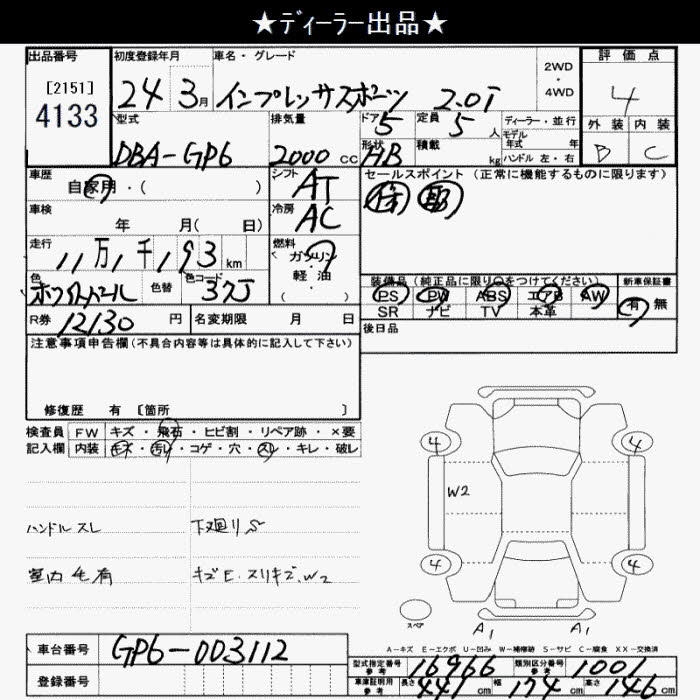 ★ディーラー出品★
出品番号 初度登録年月 車名・グレード 2WD・4WD 評価点
[2151]
4133
24 3月 インプレッサスポーツ 2.0i 4
型式 排気量 ドア 5 定員 5人 ディーラー・並行 外装 内装
モデル年式 年
DBA-GP6 2000cc 形状 HB 積載 kg ハンドル 左・右 B C
車歴 自家用・( ) シフト AT セールスポイント (正常に機能するものに限ります)
車検 年 月(日) 冷房 AC
走行 11万1千193km 燃料 ガソリン・軽油・( )
色 ホワイトパール 色替 色コード 37J
装備品(純正品に限り〇をつけてください) 新車保証書
PS PW ABS エアB AW 有 無
SR ナビ TV 本革
R券 12130円 名変期限 月 日 後日品
注意事項申告欄(不具合内容等は具体的に記入して下さい)
修復歴 有 [箇所 ]
検査員 FW キズ・飛石・ヒビ割・リペア跡・×要
記入欄 内装 キズ・汚れ・コゲ・穴・スレ・キレ・破レ
4 4
W2
ハンドルスレ 下廻りS
室内毛有 キズE.スリキズ.W2
4 4
スペア A1 A1
A-キズ E-エクボ U-凹み W-補修跡 S-サビ C-腐食 XX-交換済
車台番号 GP6-003112
型式指定番号 参考 16966 類別区分番号 参考 1001
登録番号 車庫証明用 参考 長さ 441cm 幅 174cm 高さ 146cm